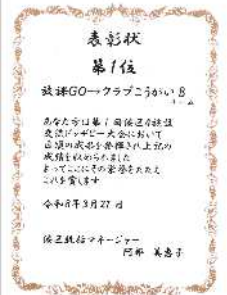 表彰状
第1位
放課GO→クラブこうがい B
チーム
あなた方は第1回佐迫合施設
交流ドッヂビー大会において
日頃の成果を発揮され上記の
成績を収められました
よってここにその栄誉をたたえ
これを賞します
令和8年3月27日
統括マネージャー
阿部 美恵子